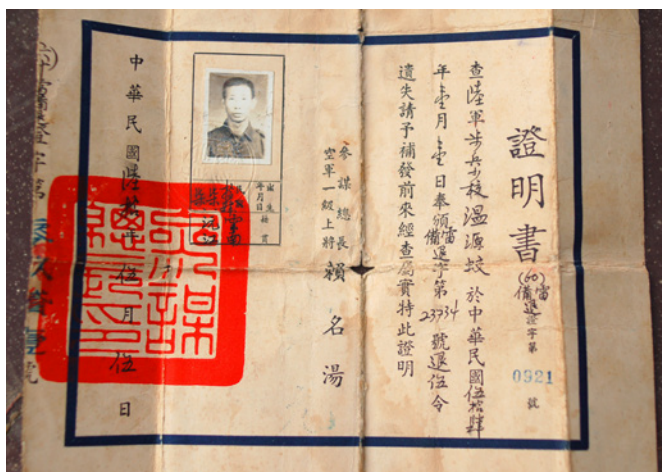 證明書
(60)雷
備退證字第
0921
號
查陸軍步兵少校溫源蛟於中華民國伍拾肆
年壹月壹日奉頒雷
備退字第23734號退伍令
遺失請予補發前來經查屬實特此證明
參謀總長
空軍一級上將
賴名湯
出生
年月日
籍貫
雲南
中華民國陸拾年伍月伍日